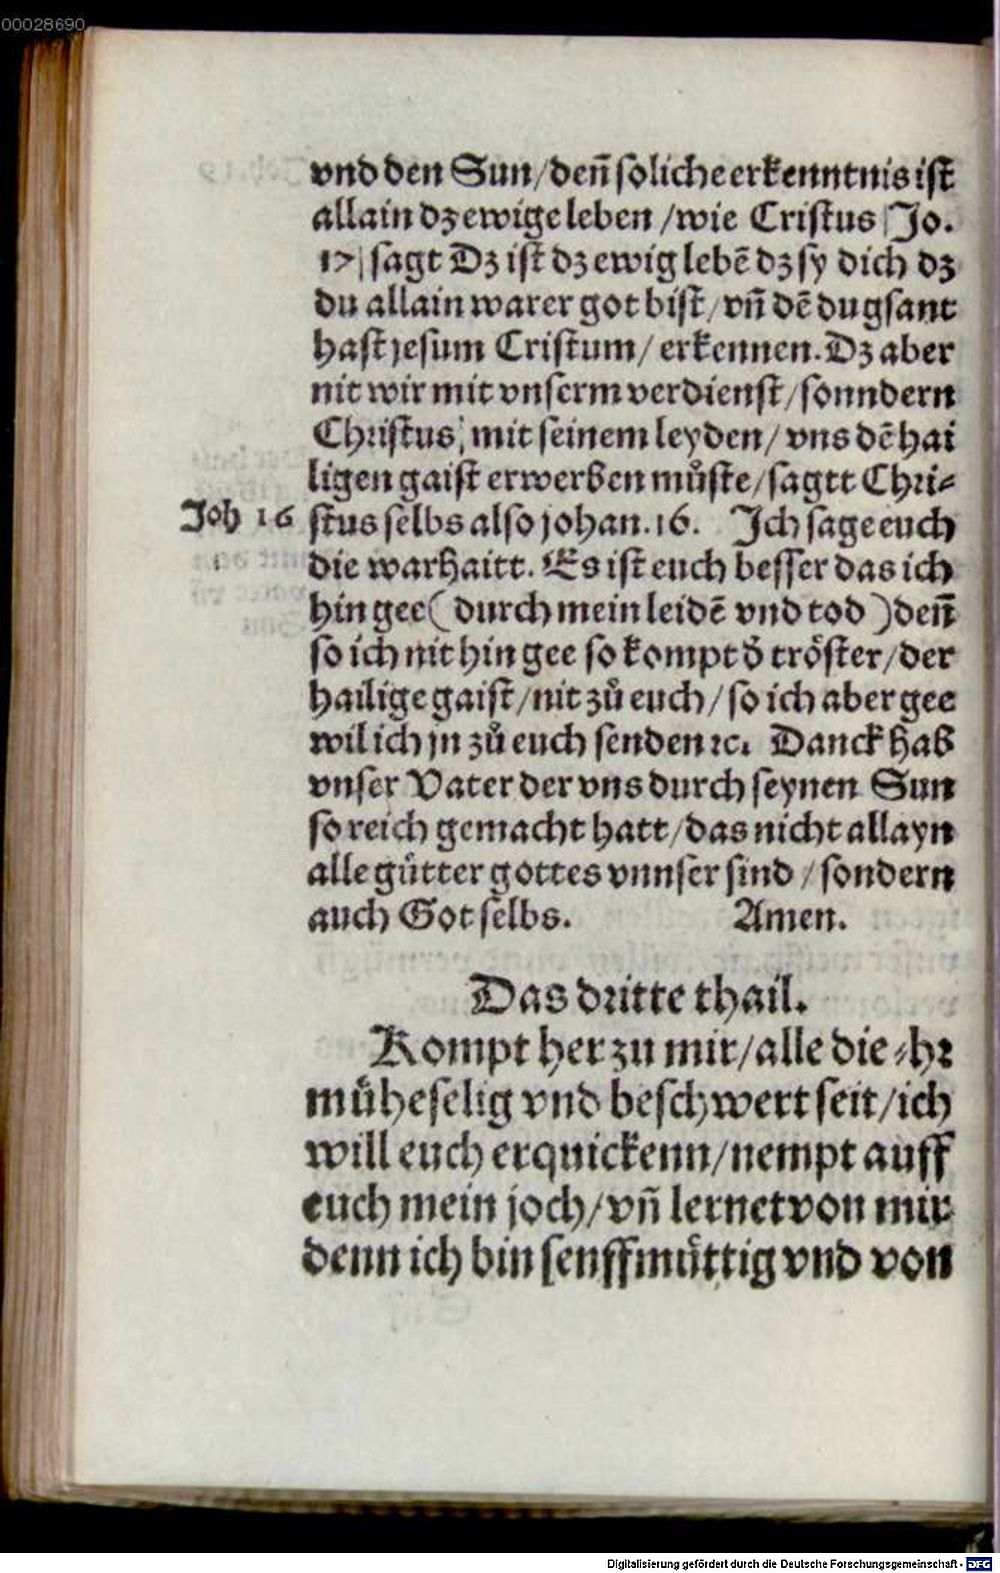 00028690
vnd den Sun/deñ soliche erkenntnis ist
allain dz ewige leben /wie Cristus Jo.
17 sagt Dz ist dz ewig lebē dz sy dich dz
du allain warer got bist/vñ dē du gsant
hast jesum Cristum/ erkennen. Dz aber
nit wir mit vnserm verdienst/sonndern
Christus, mit seinem leyden/ vns dē hai
ligen gaist erwerben můste/sagtt Chri⸗
Joh 16 stus selbs also johan.16. Ich sage euch
die warhaitt. Es ist euch besser das ich
hin gee( durch mein leidē vnd tod )deñ
so ich nit hin gee so kompt d̕ tröster/der
hailige gaist/nit zů euch/so ich aber gee
wil ich jn zů euch senden ꝛc. Danck hab
vnser Vater der vns durch seynen Sun
so reich gemacht hatt/das nicht allayn
alle gütter gottes vnnser sind /sondern
auch Got selbs. Amen.
Das dritte thail.
Kompt her zu mir/alle die⸗hr
müheselig vnd beschwert seit/ich
will euch erquickenn/nempt auff
euch mein joch/vñ lernet von mir
denn ich bin senffmüttig vnd von
Digitalisierung gefördert durch die Deutsche Forschungsgemeinschaft - DFG